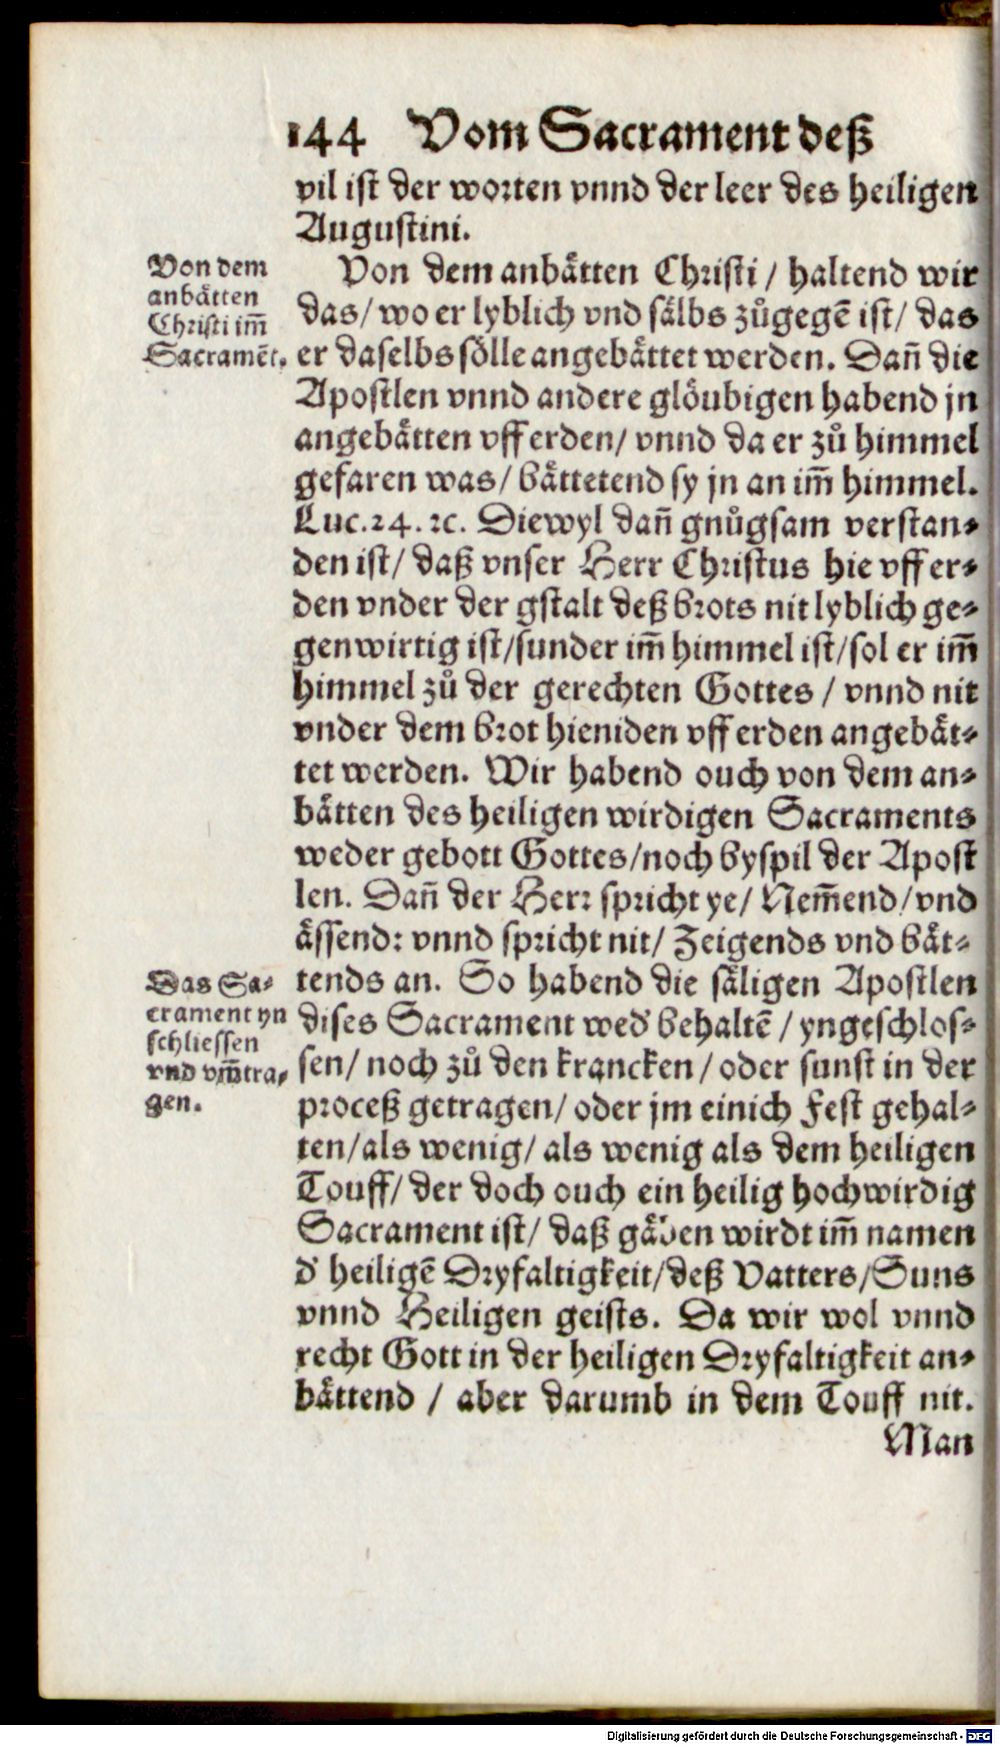 144 Vom Sacrament deß
vil ist der worten vnnd der leer des heiligen
Augustini.
Von dem
anbaͤtten
Christi im̄
Sacramēt.
Von dem anbaͤtten Christi / haltend wir
das / wo er lyblich vnd saͤlbs zůgegē ist / das
er daselbs soͤlle angebaͤttet werden. Dañ die
Apostlen vnnd andere gloͤubigen habend jn
angebaͤtten vff erden / vnnd da er zů himmel
gefaren was / baͤttetend sy jn an im̄ himmel.
Luc. 24. ꝛc. Diewyl dañ gnůgsam verstan⸗
den ist / daß vnser Herr Christus hie vff er⸗
den vnder der gstalt deß brots nit lyblich ge⸗
genwirtig ist / sunder im̄ himmel ist / sol er im̄
himmel zů der gerechten Gottes / vnnd nit
vnder dem brot hieniden vff erden angebaͤt⸗
tet werden. Wir habend ouch von dem an⸗
baͤtten des heiligen wirdigen Sacraments
weder gebott Gottes / noch byspil der Apost
len. Dañ der Herr spricht ye / Nem̄end / vnd
aͤssend: vnnd spricht nit / Zeigends vnd baͤt⸗
Das Sa⸗
crament yn
schliessen
vnd vm̄tra⸗
gen.
tends an. So habend die saͤligen Apostlen
dises Sacrament wed' behaltē / yngeschlos⸗
sen / noch zů den krancken / oder sunst in der
proceß getragen / oder jm einich Fest gehal⸗
ten / als wenig / als wenig als dem heiligen
Touff / der doch ouch ein heilig hochwirdig
Sacrament ist / daß gaͤben wirdt im̄ namen
d' heiligē Dryfaltigkeit / deß Vatters / Suns
vnnd Heiligen geists. Da wir wol vnnd
recht Gott in der heiligen Dryfaltigkeit an⸗
baͤttend / aber darumb in dem Touff nit.
Man
Digitalisierung gefördert durch die Deutsche Forschungsgemeinschaft - DFG